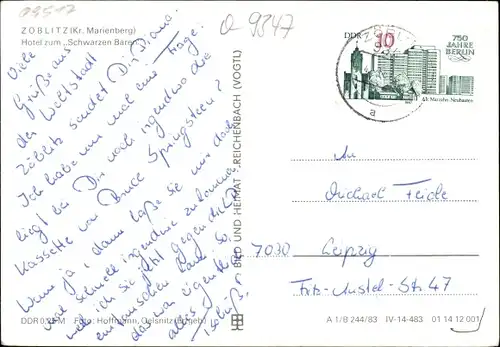 09517
a 9347
ZÖBLITZ (Kr. Marienberg)
Hotel zum „Schwarzen Bären"
Viele
Grüße aus
der Weltstadt
Zöblitz sendet Dir Diana.
Ich habe nun mal eine Frage:
liegt bei Dir noch irgendwo die
Kassette von Bruce Springsteen?
Wenn ja, dann laße sie mir doch
schnell irgendwie zukommen,
weil ich sie jetzt gegen die
eintauschen kann. So,
das war eigentlich
alles.
Tschüß!
BILD UND HEIMAT REICHENBACH (VOGTL)
DDR 10
750
JAHRE
BERLIN
ZÖBLI
a
An
Michael Feide
7030 Leipzig
Fritz-Austel-Str. 47
DDR M Foto: Hoffmann, Oelsnitz (Erzgeb.)
A 1/B 244/83 IV-14-483 01 14 12 001